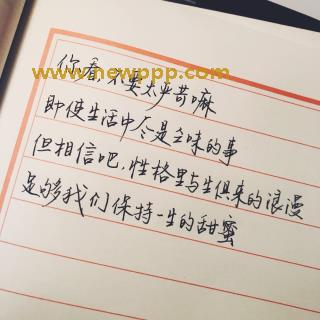 www.newppp.com
你看,不要太严苛嘛
即使生活中尽是乏味的事
但相信吧,性格里与生俱来的浪漫
足够我们保持一生的甜蜜